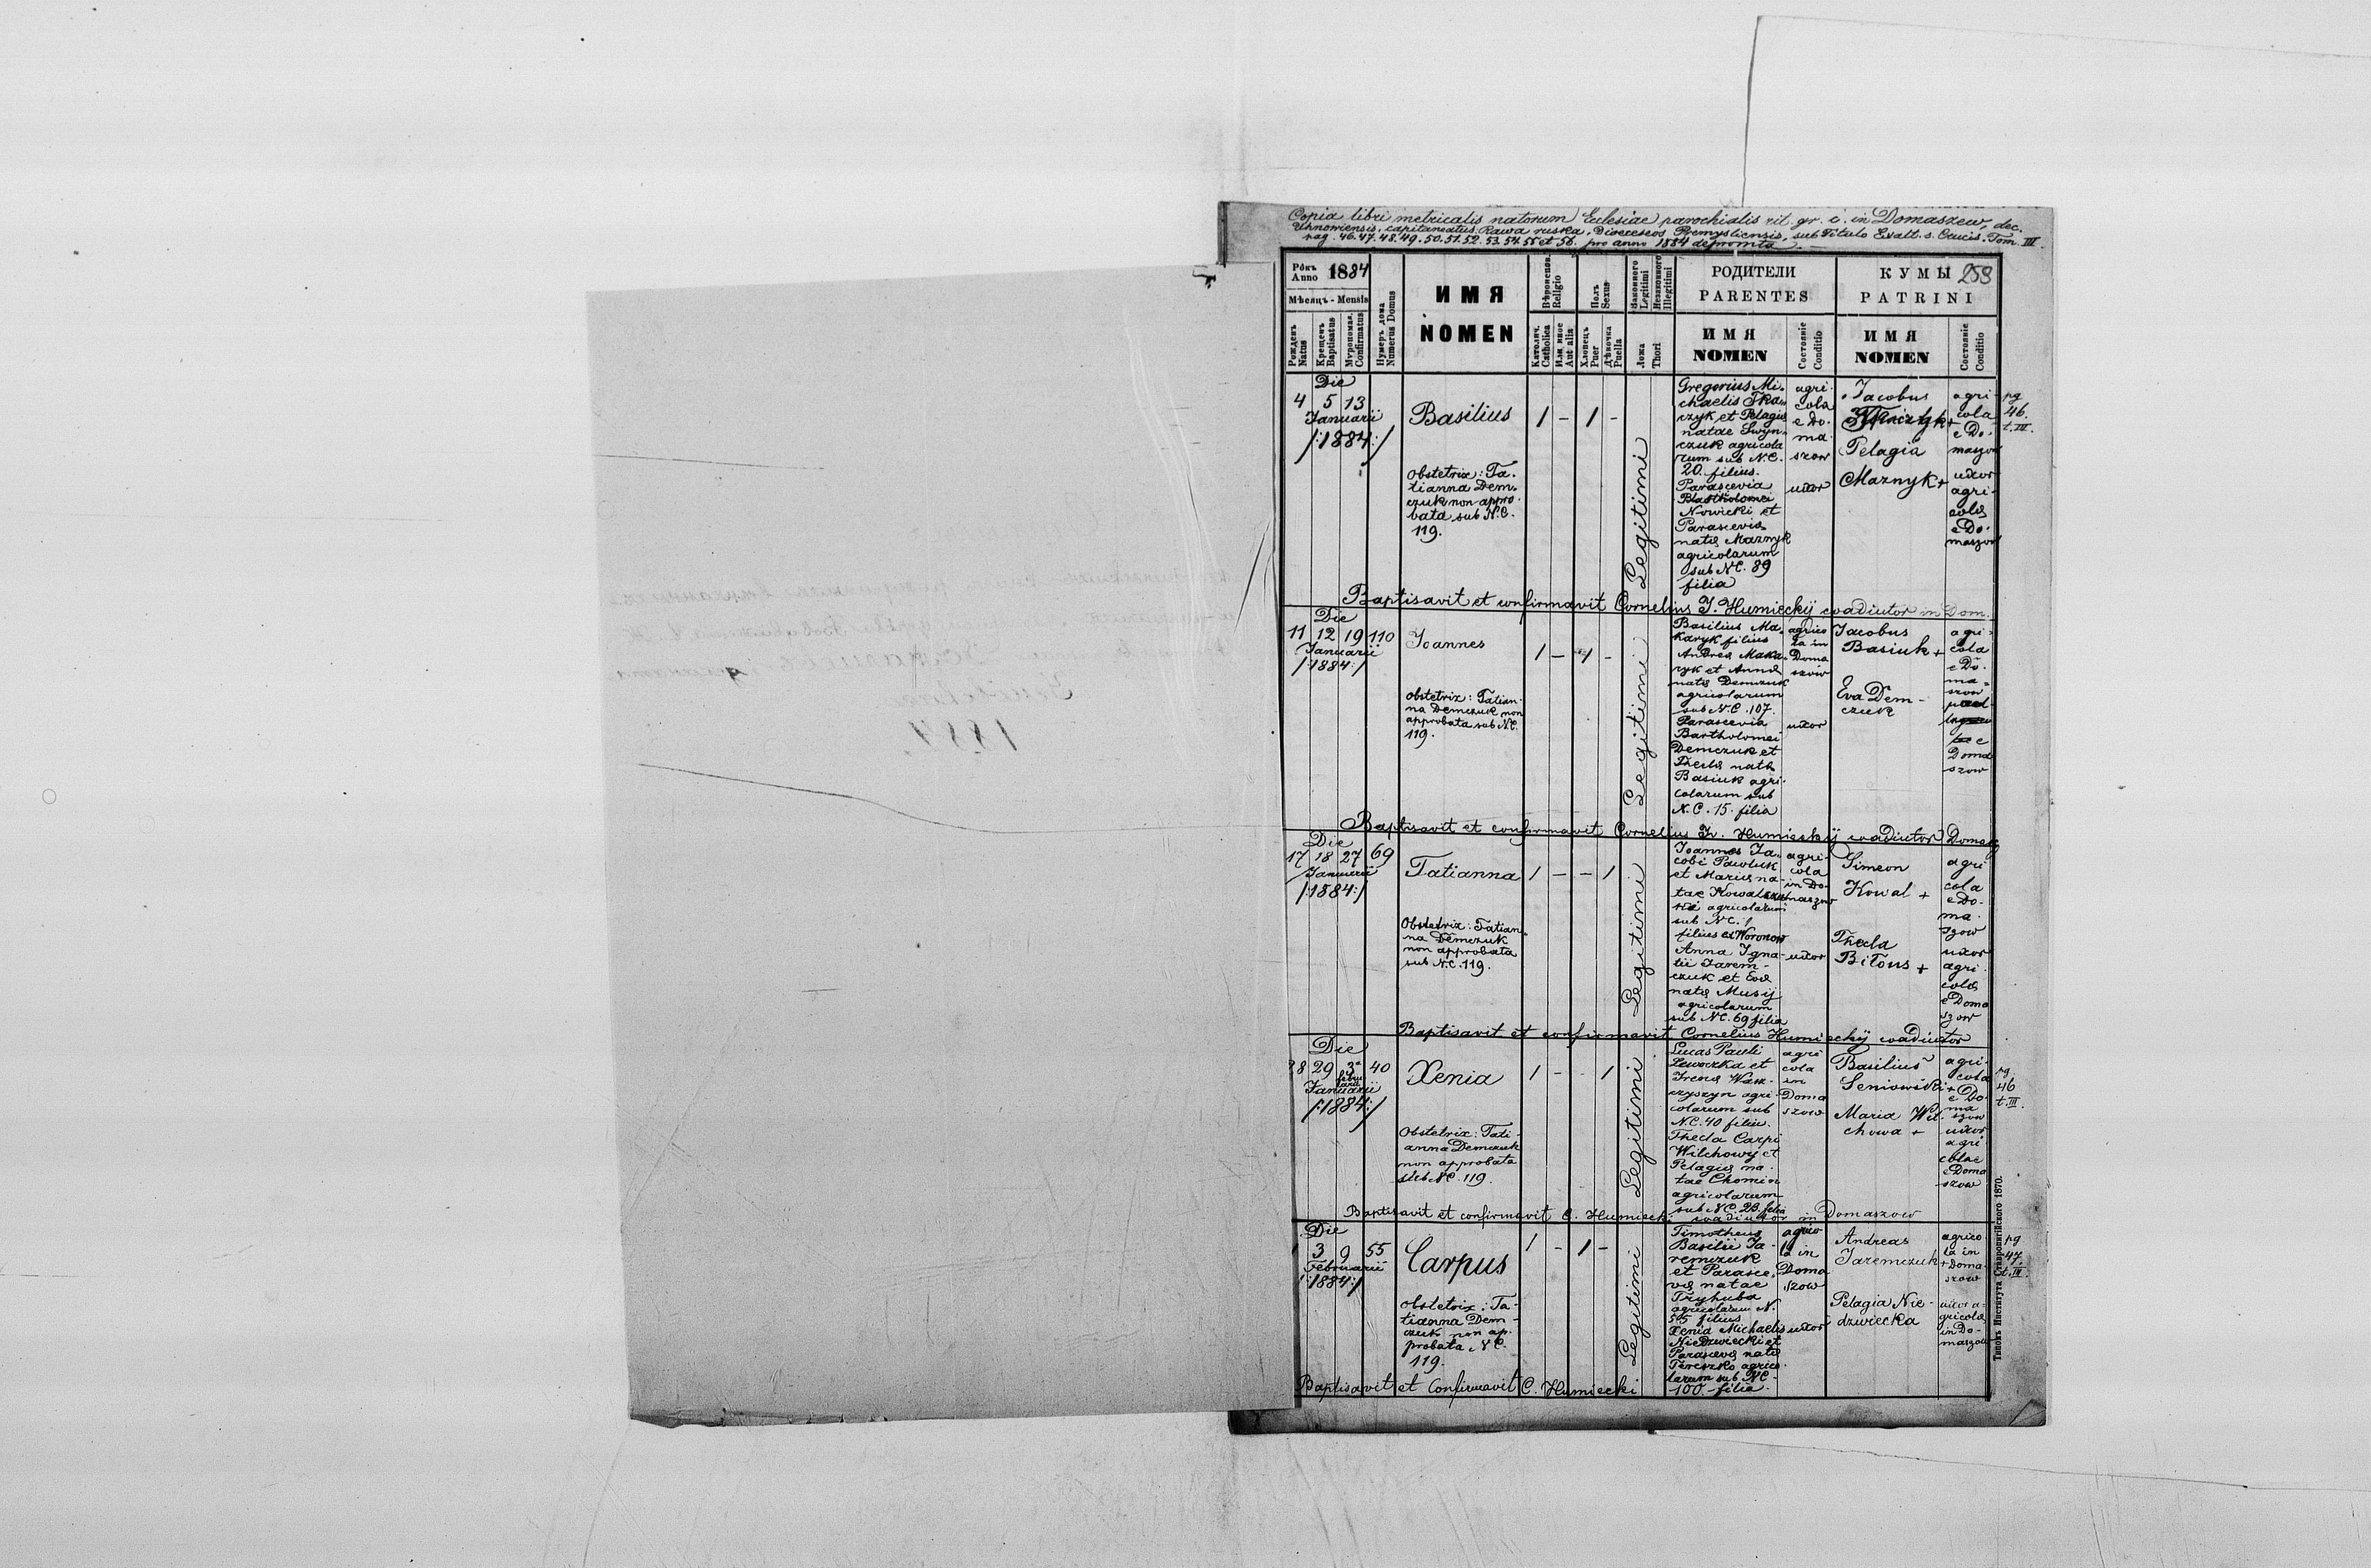 Copia libri metricalis natorum Ecclesiae parochialis rit. gr. c. in Domaszew, dec.
Uhnoviensis, capitaneatus Rawa ruska, Dioeceseos Premysliensis, sub Titulo Exalt. s. Crucis. Tom. III.
pag. 46. 47. 48. 49. 50. 51. 52. 53. 54. 55 et 56. pro anno 1884 depromta
Рôкъ
Anno 1884
Мѣсяцъ - Mensis
Рожденъ
Natus
Крещенъ
Baptisatus
Муропомаз.
Confirmatus
Нумеръ дома
Numerus Domus
ИМЯ
NOMEN
Вѣроиспов.
Religio
Католич.
Catholica
Или иное
Aut alia
Полъ
Sexus
Хлопецъ
Puer
Дѣвочка
Puella
Законного
Legitimi
Незаконного
Illegitimi
Ложа
Thori
РОДИТЕЛИ
PARENTES
ИМЯ
NOMEN
Состояніе
Conditio
КУМЫ 253
PATRINI
ИМЯ
NOMEN
Состояніе
Conditio
Die
4 5 13
Januarii
/:1884:/
Basilius
1 - 1 -
obstetrix: Ta-
tianna Dem-
czuk non appro-
bata sub N.C.
119.
Legitimi
Gregorius Mi-
chaelis Tka-
czyk et Pelagia
natae Swyn-
czuk agricola
rum sub N.C.
20. filius.
Parascevia
Bartholomei
Nowicki et
Parascevia
nata Maznyk
agricolarum
sub N.C. 89
filia
agri-
cola
e Do-
ma-
szow
uxor
Jacobus
Pelagia
Maznyk +
agri-
cola
e Do-
maszow
uxor
agri-
cola
e Do-
maszow
pg
46.
t. III.
Baptisavit et confirmavit Cornelius J. Humieckij coadiutor in Dom.
Die
11 12 19 110
Januarii
/:1884:/
Joannes
1 - 1 -
obstetrix: Tatian-
na Demczuk non
approbata sub N.C.
119.
Legitimi
Basilius Ma-
karyk filius
Andrea Maka-
ryk et Anna
nata Demczuk
agricolarum
sub N.C. 107.
Parascevia
Bartholomei
Demczuk et
Thecla nata
Basiuk agri-
colarum sub
N.C. 15. filia
agrico
la in
Doma
szow
uxor
Jacobus
Basiuk +
Eva Dem-
czuk
agri-
cola
e Do-
ma-
szow
e
Doma
szow
Baptisavit et confirmavit Cornelius Humieckij coadiutor Domasz
Die
17 18 27 69
Januarii
/:1884:/
Tatianna
1 - - 1
Obstetrix: Tatian-
na Demczuk
non approbata
sub N.C. 119.
Legitimi
Joannes Ja-
cobi Pawluk
et Maria na-
tae
agricolarum
sub N.C. 1
filius ex Woronow
Anna Igna-
tii Jarem-
czuk et Eva
nata Musij
agricolarum
sub N.C. 69 filia
agri-
cola
in Do-
maszow
uxor
Simeon
Kowal +
Thecla
Biłous +
agri
cola
e Do-
ma-
szow
uxor
agri-
cola
e Doma
szow
Baptisavit et confirmavit Cornelius Humieckij coadiutor
Die
28 29 3 40
Januarii
/:1884:/
Xenia
1 - - 1
Obstetrix: Tati-
anna Demczuk
non approbata
sub N.C. 119.
Legitimi
Lucas Pauli
Lewoczka et
Irena Wasz-
czyszyn agri-
colarum sub
N.C. 40 filius.
Thecla Carpi
Wilchowy et
Pelagia na-
tae Chomin
agricolarum
sub N.C. 23. filia
agri
cola
in
Doma
szow
Basilius
Seniowski +
Maria Wil-
chowa +
agri-
cola
e Do-
ma
szow
uxor
agri
colae
e Doma
szow
pg
46
t. III.
Baptisavit et confirmavit C. Humiecki coadiutor in Domaszow
Die
1 3 9 55
Februarii
/:1884:/
Carpus
1 - 1 -
obstetrix: Ta-
tianna Dem-
czuk non ap-
probata N.C.
119.
Legitimi
Timotheus
Basilii Ja-
remczuk
et Parasce-
va natae
Tryhuba
agricolarum N.
55 filius
Xenia Michaelis
Niedzwiecki et
Parasceva nata
Tereszko agrico-
larum sub N.C.
100. filia.
agrico
la in
Doma
szow
uxor
Andreas
Jaremczuk +
Pelagia Nie-
dzwiecka
agrico
la in
Doma-
szow
uxor a-
gricola
in Do-
maszow
pg
47.
t. III.
Baptisavit et Confirmavit C. Humiecki
Типомъ Института Ставропигійского 1870.